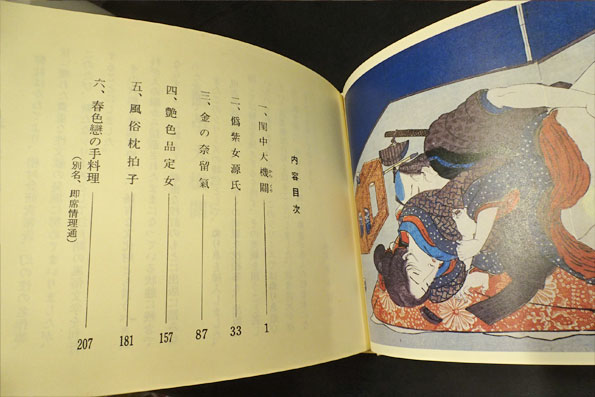 内容目次
一、閨中大機關 1
二、僞紫女源氏 33
三、金の奈留氣 87
四、艶色品定女 157
五、風俗枕拍子 181
六、春色戀の手料理 207
(別名、即席情理通)